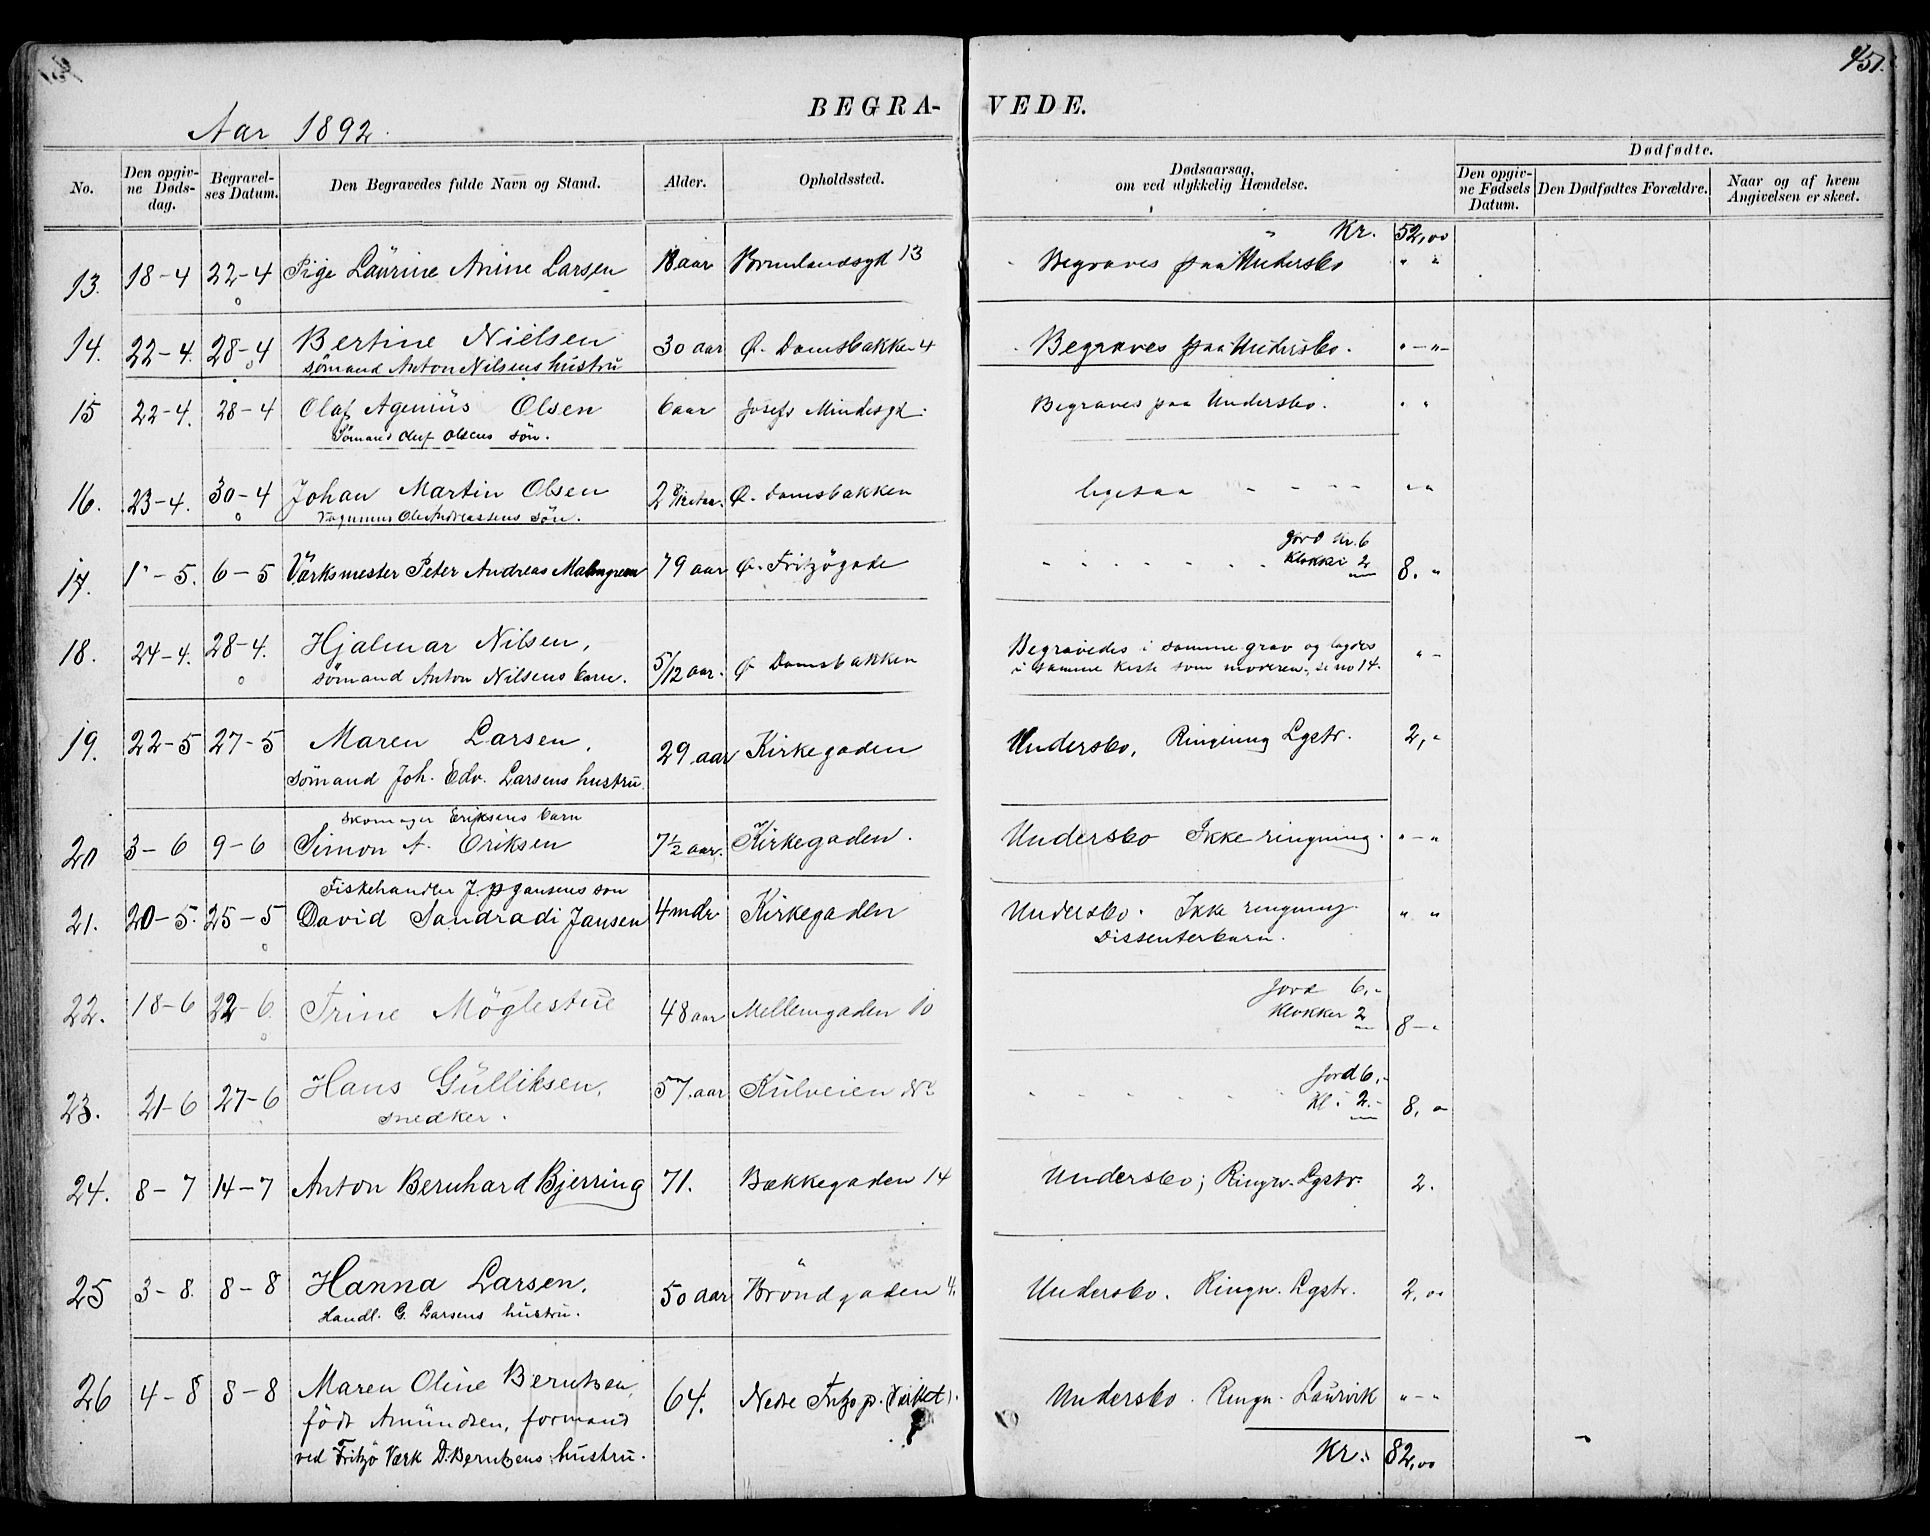 451.
BEGRA- VEDE.
Aar 1892.
No. | Den opgivne Dødsdag. | Begravelses Datum. | Den Begravedes fulde Navn og Stand. | Alder. | Opholdssted. | Dødsaarsag, om ved ulykkelig Hændelse. | Dødfødte. | Den opgivne Fødsels Datum. | Den Dødfødtes Forældre. | Naar og af hvem Angivelsen er skeet.
Kr. 52,00
13. 18-4 22-4 Pige Laurine Anine Larsen 18 aar 13 Begraves paa Undersbo " "
14. 22-4. 28-4 Bertine Nielsen 30 aar Ø. Damsbakken 4 Begraves paa Undersbo. " - " -
sömand Anton Nilsens hustru
15 22-4. 28-4 Olaf Agenius Olsen 6 aar Josefs Mindesgd. Begraves paa Undersbo. " "
Sömand Oluf Olsens sön.
16. 23-4. 30-4 Johan Martin Olsen 2 Ø. Damsbakken ligesaa " - - - - " "
Ole Andreassens sön.
Jord Kr. 6
17. 1-5. 6-5 Værksmester Peter Andreas Malmgreen 79 aar Ø. Fritzögade Klokker 2 8. "
18. 24-4. 28-4. Hjalmar Nilsen, 5/12 aar. Ø Damsbakken Begravedes i samme grav og lagdes " -
sömand Anton Nilsens barn. i samme kiste som moderen, se no 14.
19. 22-5 27-5 Maren Larsen, 29 aar Kirkegaden Undersbo, Ringning Lgstr. 2, "
Sömand Joh. Edv. Larsens hustru.
Skomager Eriksens barn
20 3-6 9-6 Simon A. Eriksen 7½ aar. Kirkegaden. Undersbo Ikke ringning. " - "
Fiskehandler J. Jansens sön
21. 20-5. 25-5 David Sandradi Jansen 4 mdr Kirkegaden Undersbo. Ikke ringning. " "
Dissenterbarn.
Jord 6,-
22. 18-6 22-6. Trine Möglestue 48 aar Mellemgaden 10 Klokker 2 8 - "
Jord 6,-
23. 21-6 27-6 Hans Gulliksen, 57. aar Kulveien Kl. 2.- 8, "
snedker.
24. 8-7 14-7 Anton Bernhard Bjerring 71. Bækkegaden 14 Undersbo; Ringn. Lgstr. 2.
25 3-8. 8-8 Hanna Larsen, 50 aar Bröndgaden 4, Undersbo. Ringn. Lgstr. 2,00
Handl. G. Larsens hustru.
26 4-8 8-8 Maren Oline Berntsen, 64. Nedre Fritzö Undersbo. Ringn. Laurvik " - "
födt Amundsen, formand
ved Fritzö Værk D. Berntsens hustru.
Kr. 82,00